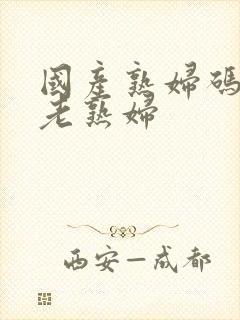 國產熟婦碼
老熟婦
西安—成都